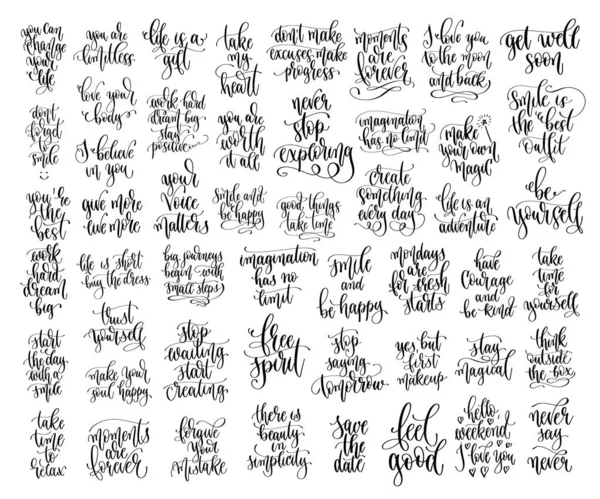 you can
change
your
life
you are
limitless
life is a
gift
take
my
heart
don't make
excuses make
progress
moments
are
forever
I love you
to the moon
and back
get well
soon
don't
forget
to
smile
love your
body
work hard
dream big
stay
positive
you are
worth
it all
never
stop
exploring
imagination
has no limit
make
your own
magic
smile is
the best
outfit
I believe
in you
you're
the
best
give more
live more
your
voice
matters
smile and
be happy
good things
take time
create
something
every day
life is an
adventure
be
yourself
work
hard
dream
big
life is short
buy the dress
big journeys
begin with
small steps
imagination
has no
limit
smile
and
be happy
mondays
are
for fresh
starts
have
courage
and
be kind
take
time
for
yourself
trust
yourself
start
the day
with a
smile
make your
soul happy
stop
waiting
start
creating
free
spirit
stop
saying
tomorrow
yes, but
first
makeup
stay
magical
think
outside
the box
take
time
to
relax
moments
are
forever
forgive
your
mistake
there is
beauty
in
simplicity
save
the
date
feel
good
hello,
weekend
I love you
never
say
never